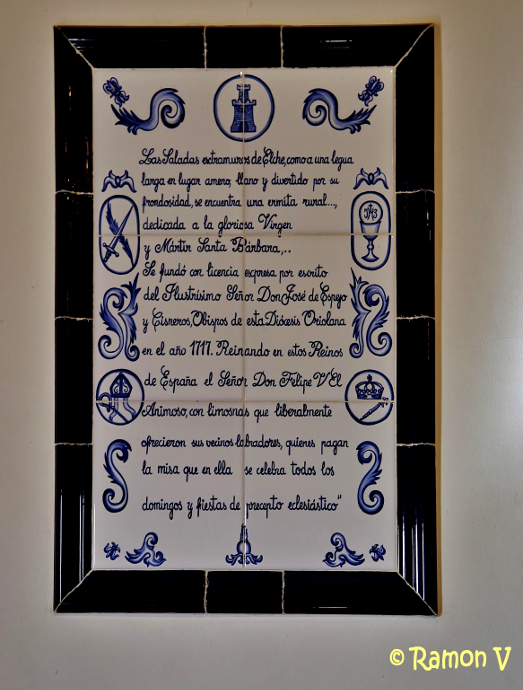 JHS
Las Saladas extramuros de Elche, como a una legua
larga en lugar ameno, llano y divertido por su
frondosidad, se encuentra una ermita rural...,
dedicada a la gloriosa Virgen
y Mártir Santa Bárbara,..
Se fundó con licencia expresa por escrito
del Ilustrísimo Señor Don José de Espejo
y Cisneros, Obispos de esta Diócesis Oriolana
en el año 1717. Reinando en estos Reinos
de España el Señor Don Felipe V El
Animoso, con limosnas que liberalmente
ofrecieron sus vecinos labradores, quienes pagan
la misa que en ella se celebra todos los
domingos y fiestas de precepto eclesiástico"
© Ramon V